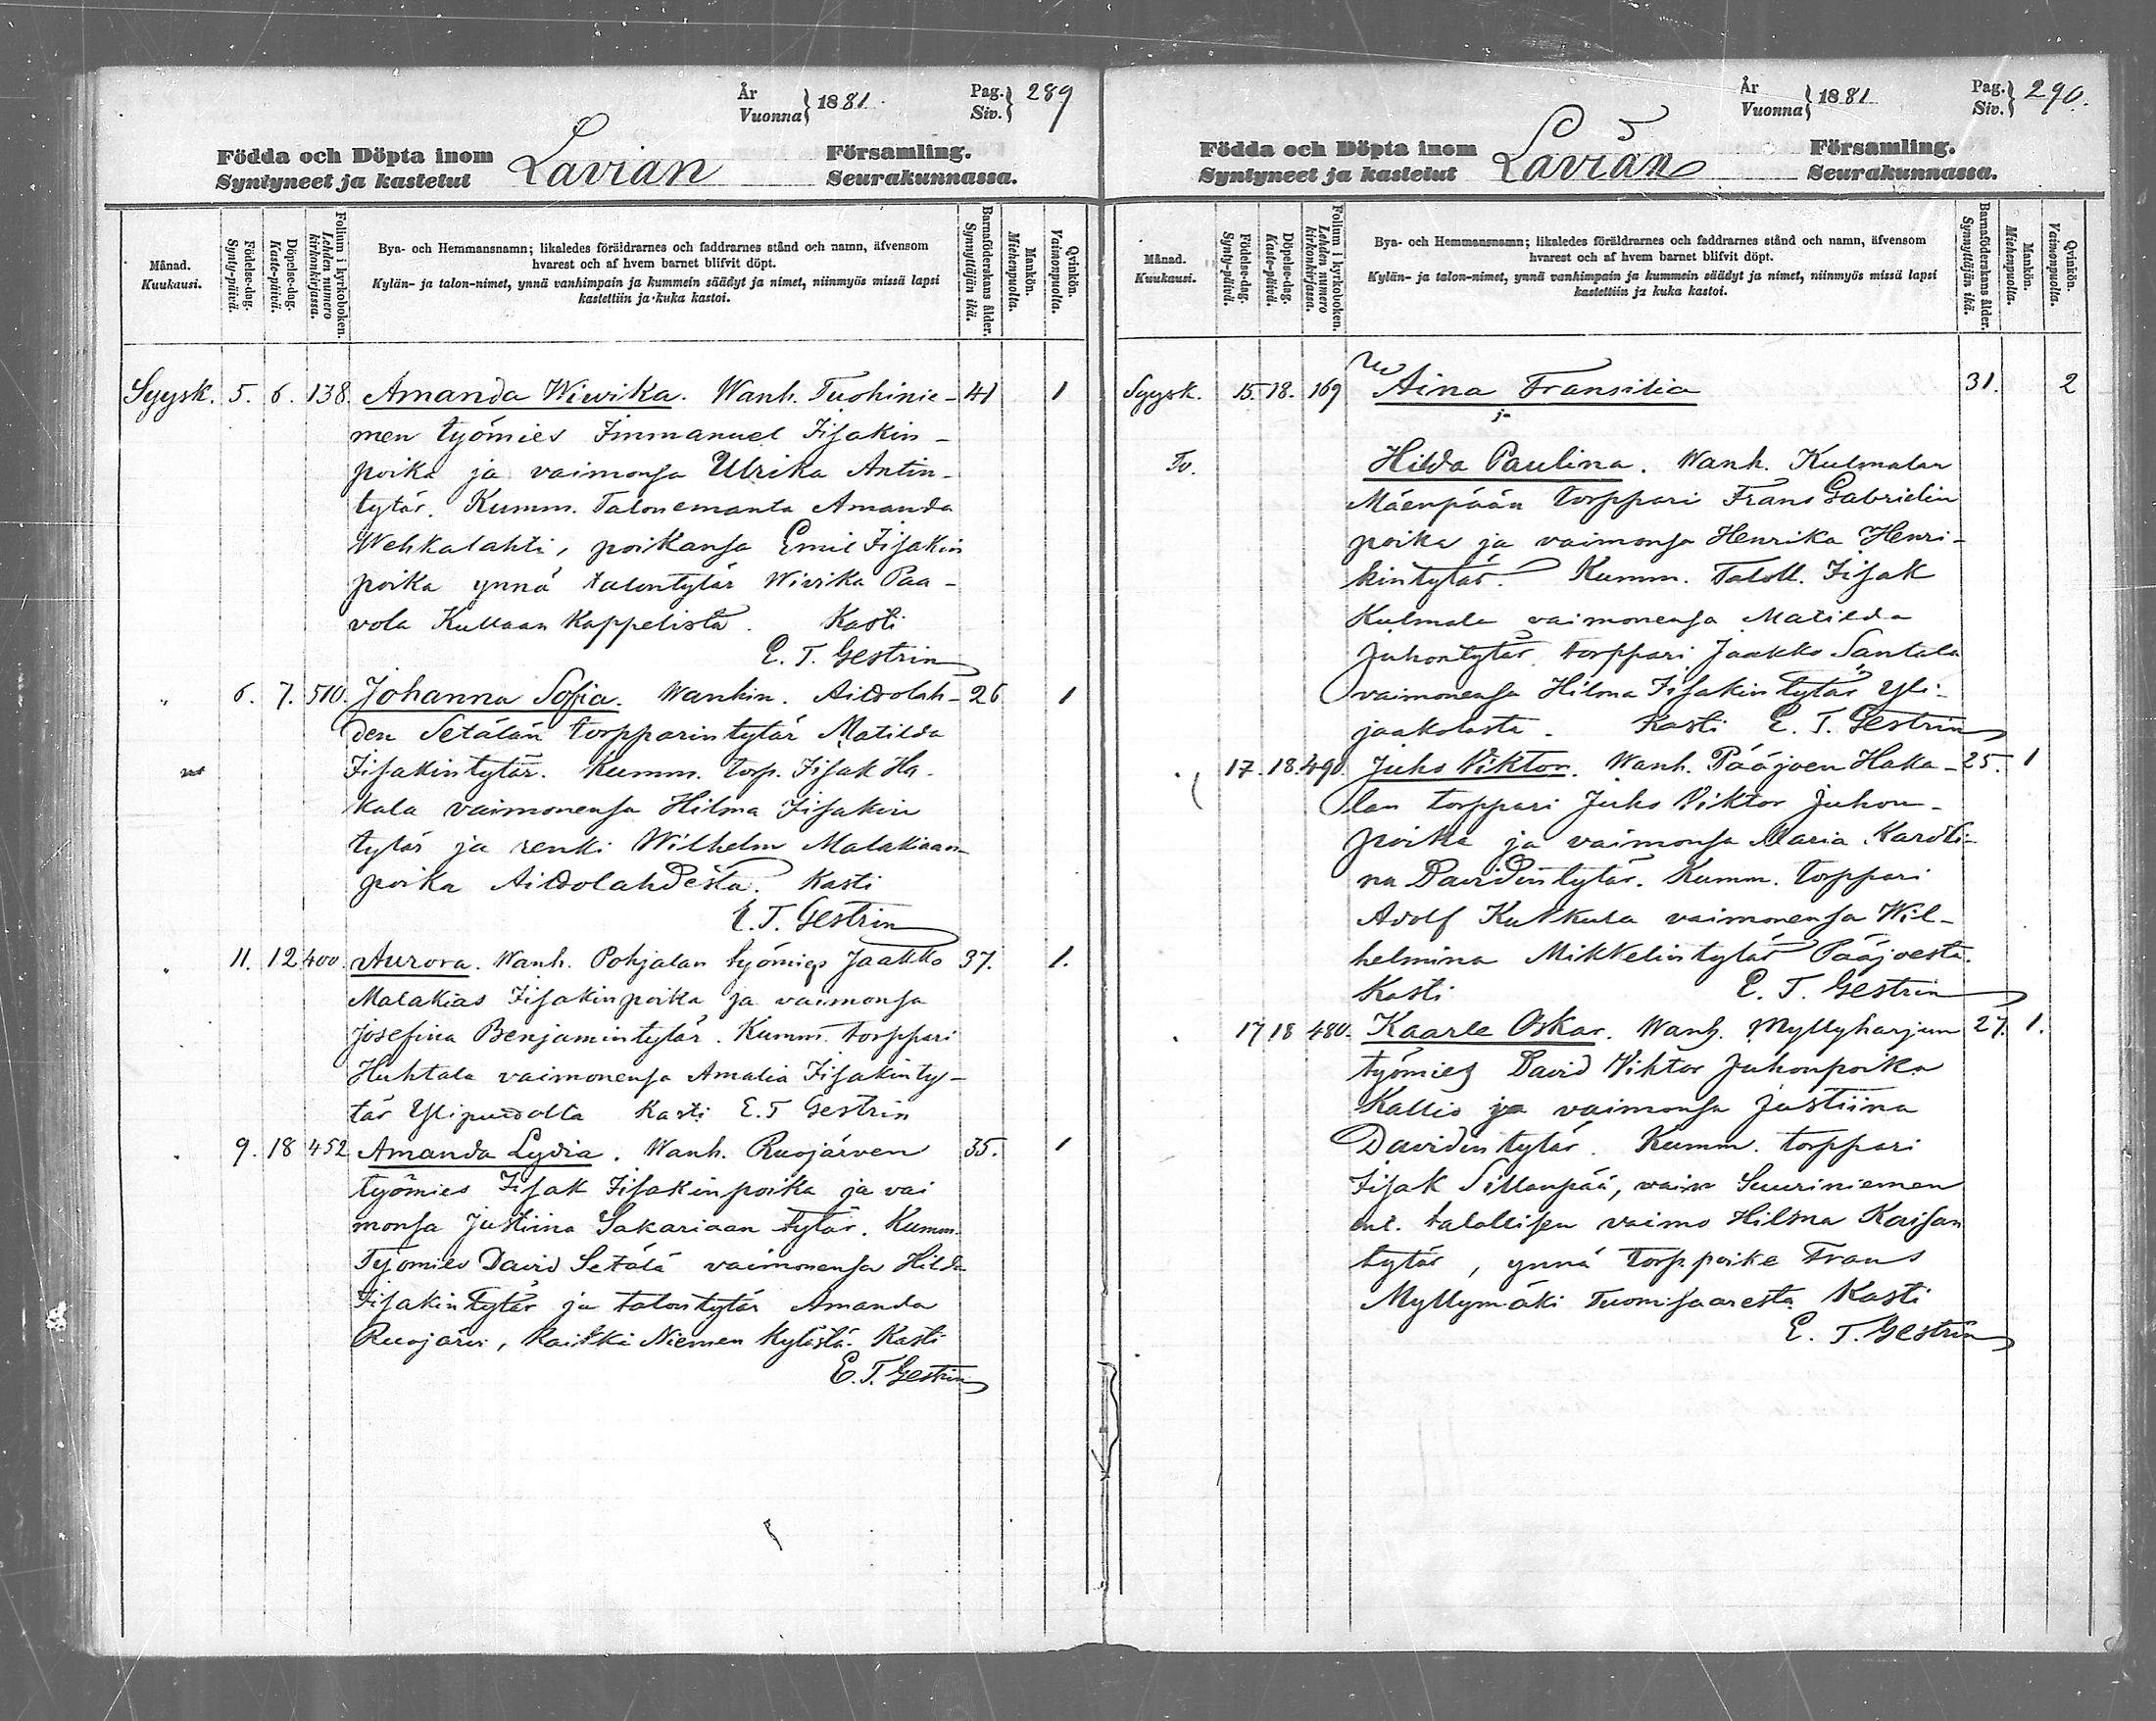 År
Vuonna } 1881.
Pag.
Siv. } 289
Födda och Döpta inom
Syntyneet ja kastetut
Lavian
Församling.
Seurakunnassa.
Månad.
Kuukausi.
Födelse-dag.
Synty-päivä.
Döpelse-dag.
Kaste-päivä.
Folium i kyrkoboken.
Lehden numero
kirkonkirjassa.
Bya- och Hemmansnamn; likaledes föräldrarnes och faddrarnes stånd och namn, äfvensom
hvarest och af hvem barnet blifvit döpt.
Kylän- ja talon-nimet, ynnä vanhimpain ja kummein säädyt ja nimet, niinmyös missä lapsi
kastettiin ja kuka kastoi.
Barnaföderskans ålder.
Synnyttäjän ikä.
Mankön.
Miehenpuolta.
Qvinkön.
Vaimonpuolta.
Syysk. 5. 6. 138. Amanda Wiwika. Wanh. Tuohinie- 41 1
men työmies Immanuel Iisakin-
poika ja vaimonsa Ulrika Antin-
tytär. Kumm. Talonemänta Amanda
Wehkalahti, poikansa Emil Iisakin
poika ynnä talontytär Wivika Paa-
vola Kullaan Kappelista. Kasti
E. T. Gestrin
" 6. 7. 510. Johanna Sofia. Wanhin. Aittolah- 26 1
den Setälän torpparintytär Matilda
Iisakintytär. Kumm. torp. Iisak Ha-
kala vaimonensa Hilma Iisakin
tytär ja renki Wilhelm Malakiaan-
poika Aittolahdesta. Kasti
E. T. Gestrin
" 11. 12 400. Aurora. Wanh. Pohjalan työmies Jaakko 37. 1.
Malakias Iisakinpoika ja vaimonsa
Josefina Benjamintytär. Kumm. torppari
Huhtala vaimonensa Amalia Iisakinty-
tär Ylipuodolta Kasti E. T Gestrin
" 9. 18 452 Amanda Lydia. Wanh. Ruojärven 35. 1
työmies Iisak Iisakinpoika ja vai
monsa Justiina Sakariaan tytär. Kumm.
Työmies David Setälä vaimonensa Hilda
Iisakintytär ja talontytär Amanda
Ruojärvi, kaikki Niemen kylästä. Kasti
E. T. Gestrin
År
Vuonna } 1881
Pag.
Siv. } 290.
Födda och Döpta inom
Syntyneet ja kastetut
Lavian
Församling.
Seurakunnassa.
Månad.
Kuukausi.
Födelse-dag.
Synty-päivä.
Döpelse-dag.
Kaste-päivä.
Folium i kyrkoboken.
Lehden numero
kirkonkirjassa.
Bya- och Hemmansnamn; likaledes föräldrarnes och faddrarnes stånd och namn, äfvensom
hvarest och af hvem barnet blifvit döpt.
Kylän- ja talon-nimet, ynnä vanhimpain ja kummein säädyt ja nimet, niinmyös missä lapsi
kastettiin ja kuka kastoi.
Barnaföderskans ålder.
Synnyttäjän ikä.
Mankön.
Miehenpuolta.
Qvinkön.
Vaimonpuolta.
Syysk. 15. 18. 169 Aina Fransilia 31. 2
ja
Hilda Paulina. Wanh. Kulmalan
Mäenpään torppari Frans Gabrielin
poika ja vaimonsa Henrika Henri-
kintytär. Kumm. Taloll. Iisak
Kulmala vaimonensa Matilda
Juhontytär torppari Jaakko Santala
vaimonensa Hilma Iisakintytär Yli-
jaakolasta. Kasti E. T. Gestrin
" 17. 18. 490. Juho Viktor. Wanh. Pääjoen Haka- 25. 1
lan torppari Juho Viktor Juhon-
poika ja vaimonsa Maria Karoli-
na Davidintytär. Kumm. torppari
Adolf Kulkula vaimonensa Wil-
helmina Mikkelintytär Pääjoesta.
Kasti E. T. Gestrin
" 17 18 480. Kaarle Oskar. Wanh. Myllyharjun 27. 1.
työmies David Viktor Juhonpoika
Kallio ja vaimonsa Justiina
Davidintytär. Kumm. torppari
Iisak Sillanpää, vaim Suuriniemen
ent. talollisen vaimo Hilma Kaisan
tytär, ynnä torp poika Frans
Myllymäki Tuomisaaresta. Kasti
E. T. Gestrin